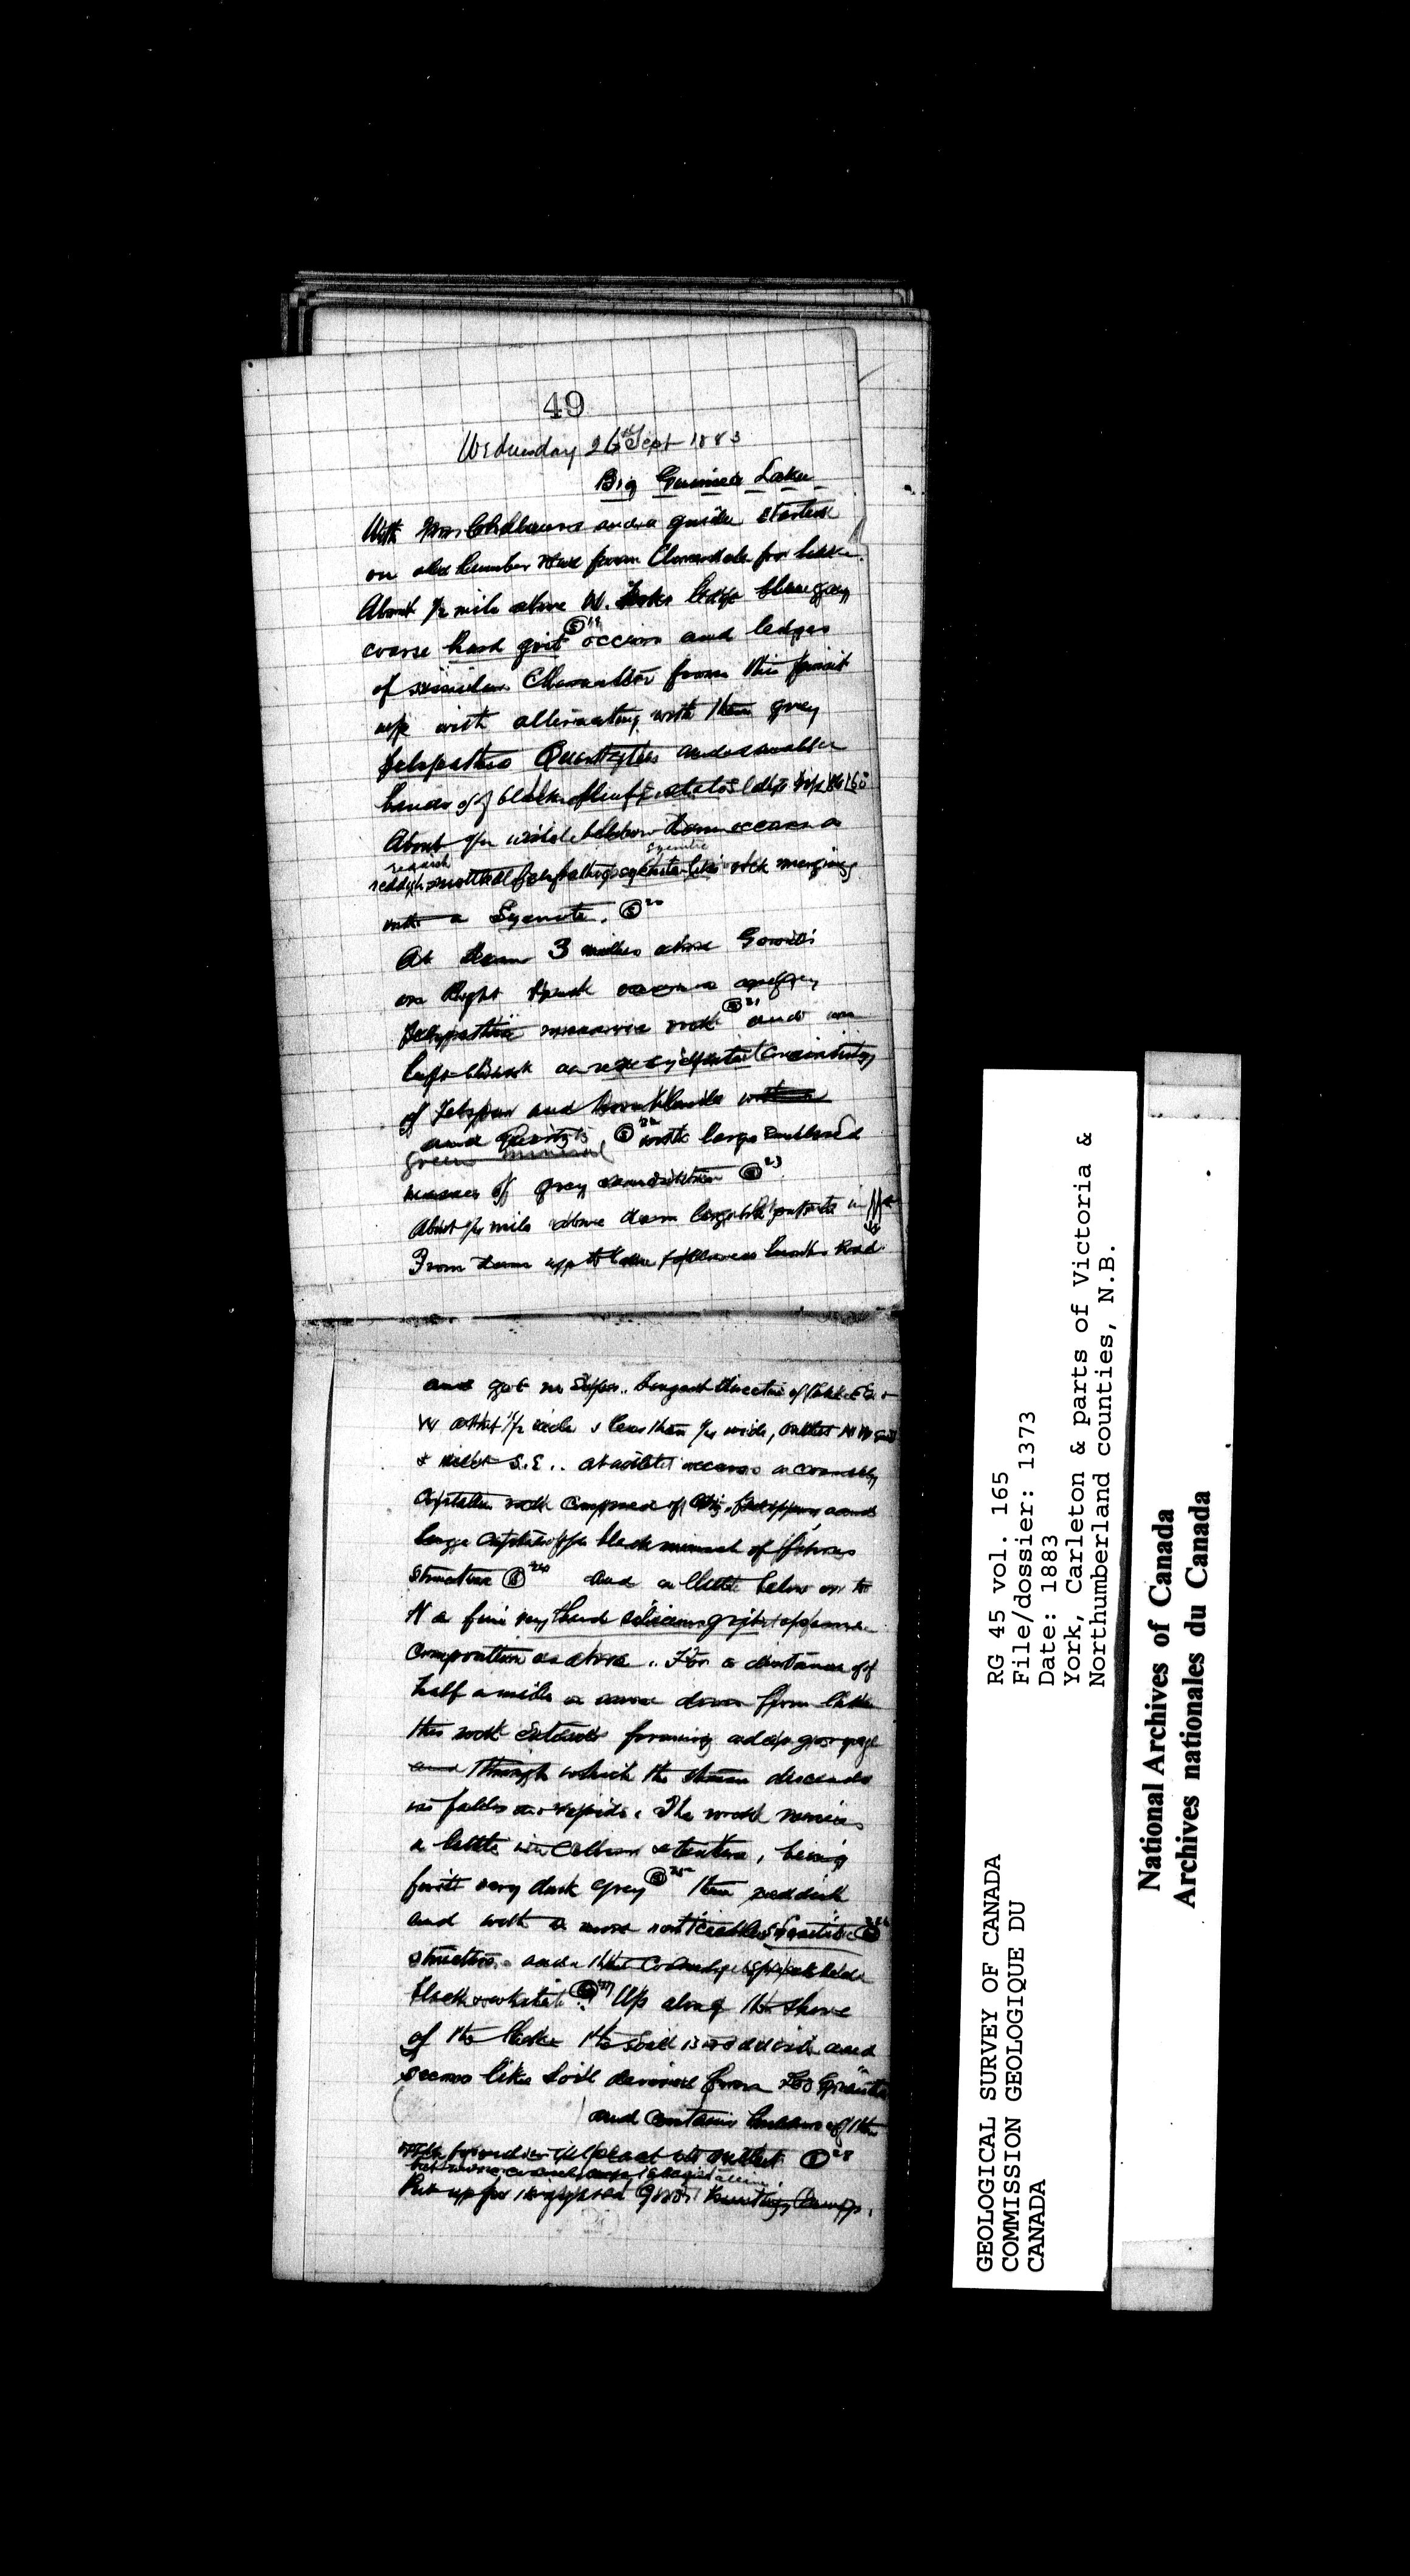 49
Wednesday 26th Sept 1883
Big Lake
With and a guide started
on old lumber road from for lake.
About 1/2 mile above W. ledge blue grey
coarse hard grit (S)19 occurs and ledges
of similar character from this point
up with alternating with them grey
felspathic Quartzites and smaller
bands of black slates
About 1/4 mile below dam occurs a
reddish
syenitic
reddish mottled felspathic rock merging
into a Syenite. (S)20
At dam 3 miles above
on Right Bank occurs a grey
felspathic massive rock (S)21 and on
left bank a red syenite (consisting
of Felspar and hornblende
and Quartz (S)22 with large enclosed
green mineral
masses of grey sandstone (S)23.
About 1/4 mile above dam
From dam up to lake followed Road
and got no Longest direction of lake E &
W about 1 1/2 mile & less than 1/4 wide, outlet N W
& inlet S.E.. at outlet occurs a coarsely
crystalline rock composed of Qtz, felspar and
large crystals of a black mineral of fibrous
structure (S)24 and a little below on the
N a fine very hard siliceous grit of same
composition as above.. For a distance of
half a mile or more down from lake
this rock extends forming a deep gorge
and through which the stream descends
in falls and rapids. The rock varies
a little in colour & texture, being
first very dark grey (S)25 then reddish
and with a more noticeable Granitic (S)26
structure and then
black & white (S)27 Up along the shore
of the lake the soil is reddish and
seems like soil derived from red Granite
and contains boulders of the
rock found in place at outlet (S)28
but more
Put up for night at Good hunting Camp.
GEOLOGICAL SURVEY OF CANADA
COMMISSION GEOLOGIQUE DU
CANADA
RG 45 vol. 165
File/dossier: 1373
Date: 1883
York, Carleton & parts of Victoria &
Northumberland counties, N.B.
National Archives of Canada
Archives nationales du Canada